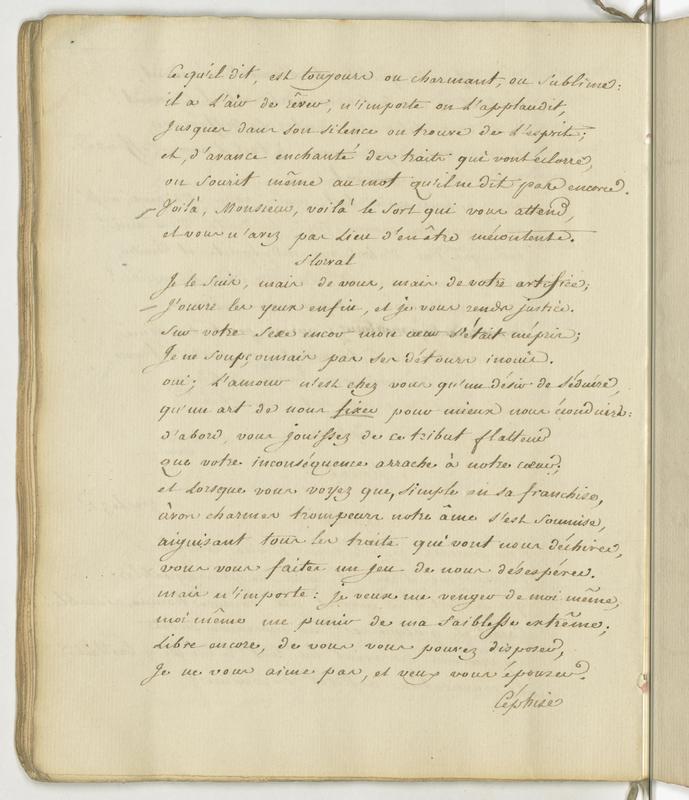 Ce qu'il dit, est toujours ou charmant, ou sublime:
il a l'air de rêver, n'importe on l'applaudit,
Jusques dans son silence on trouve de l'esprit;
et, d'avance enchanté des traits qui vont éclorre,
on sourit même au mot qu'il ne dit pas encore.
Voilà, Monsieur, voilà le sort qui vous attend,
et vous n'avez pas lieu d'en être mécontente.
Florval
Je le suis, mais de vous, mais de votre artifice;
J'ouvre les yeux enfin, et je vous rends justice.
Sur votre Sexe encor mon cœur s'était mépris;
Je ne soupçonnais pas ses détours inouis.
oui; L'amour n'est chez vous qu'un désir de séduire,
qu'un art de nous fixer pour mieux nous éconduire:
d'abord, vous jouissez de ce tribut flatteur
que votre inconséquence arrache à notre cœur;
et lorsque vous voyez que, simple en sa franchise,
à vos charmes trompeurs notre âme s'est soumise,
aiguisant tous les traits qui vont nous déchirer,
vous vous faites un jeu de nous désespérer.
mais n'importe: je veux me venger de moi même,
moi même me punir de ma faiblesse extrême;
Libre encore, de vous vous pouvez disposer,
Je ne vous aime pas, et veux vous épouser.
Céphise